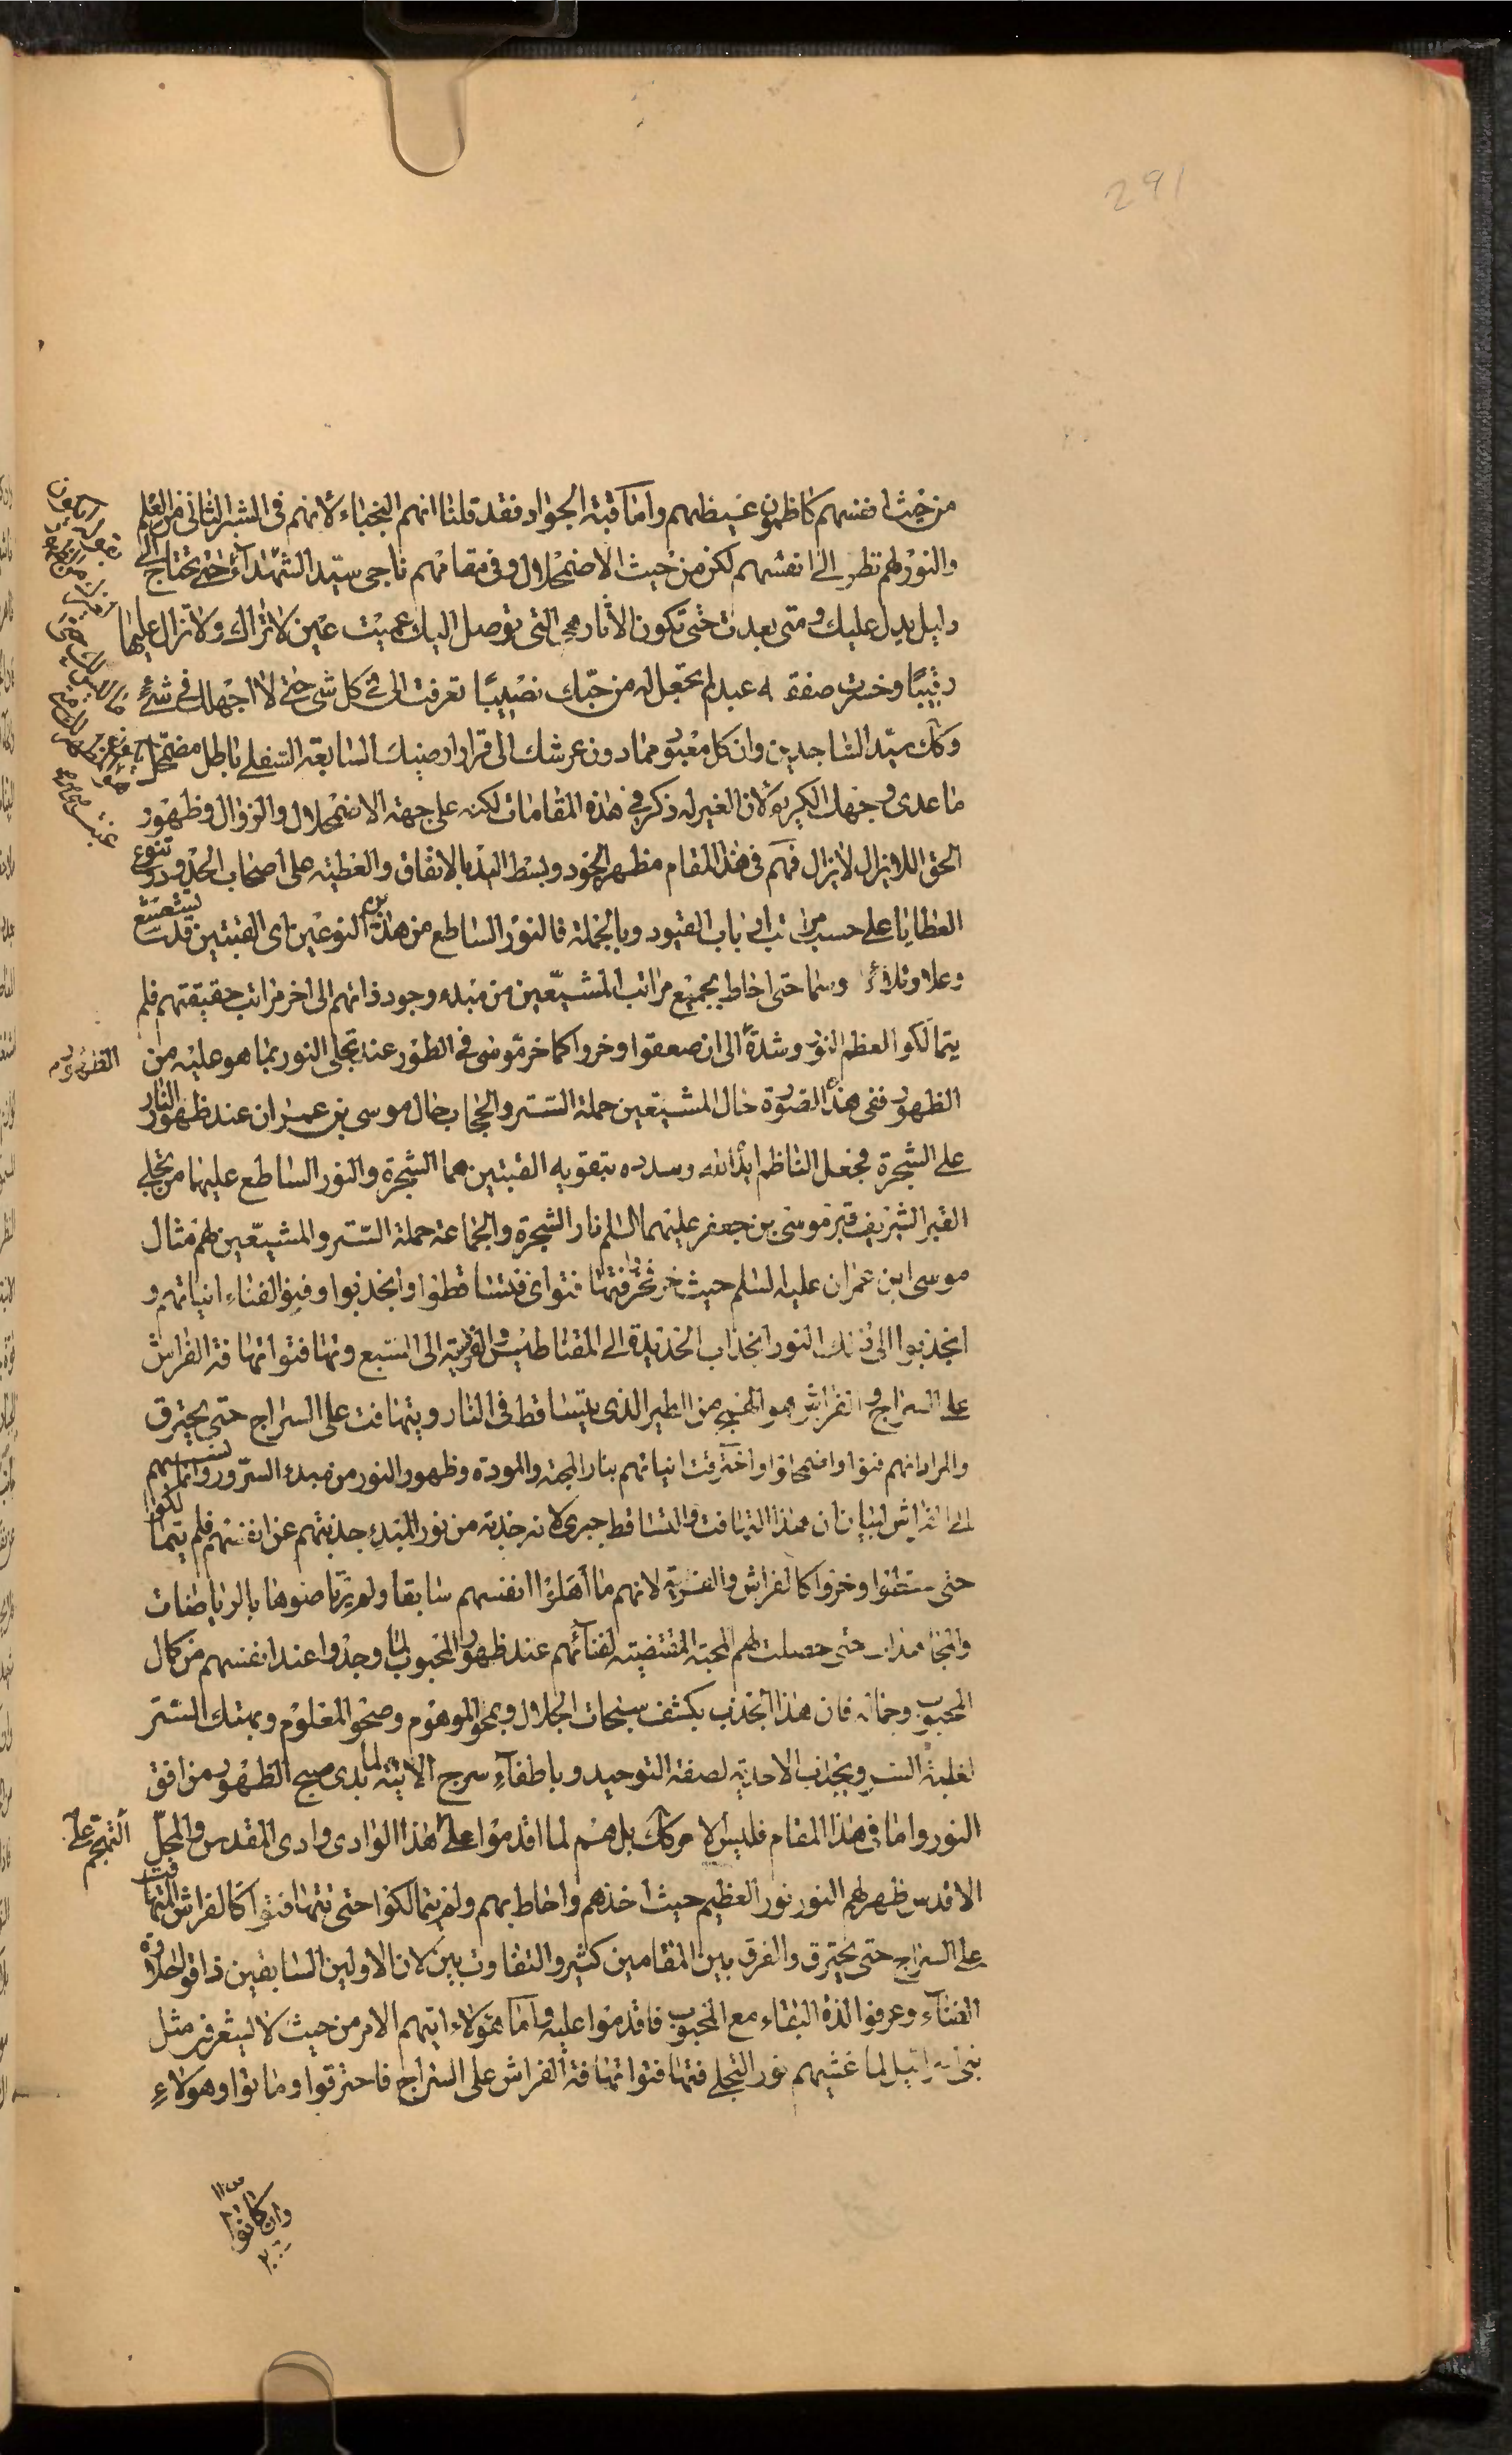 291
من حيث انفسهم كاظمون غيظهم واما قبة الجواد فقد قلنا انهم النجباء لانهم فى الشبر الثانى من العلم
والنور لهم نظر الى انفسهم لكن من حيث الاضمحلال وفى مقامهم ناجى سيد الشهداء حتى تحتاج الى
دليل يدل عليك ومتى بعدت حتى تكون الاثار هى التى توصل اليك عميت عين لا تراك ولا تزال عليها
رقيبًا وخسرت صفقة عبد لم تجعل له من حبّك نصيبًا تعرفت الى فى كل شئ حتى لا اجهلك فى شئ
وكك سيّد الساجدين وان كل معبود مما دون عرشك الى قرار ارضيك السابعة السفلى باطل مضمحل
ما عدى وجهك الكريم لان الغير له ذكر فى هذه المقامات لكنه على جهة الاضمحلال والزوال وظهور
الحق اللايزال لا يزال فهم فى هذا المقام مظهر الجود وبسط اليد بالانفاق والعطية على اصحاب الحدود وتنوع
العطايا على حسب مراتب ارباب القيود وبالجملة فالنور الساطع من هذه النوعين اى القبتين قدت يتشعشع
وعلا وتلألأ وسما حتى احاط بجميع مراتب المشيّعين من مبدء وجود ذاتهم الى اخر مراتب حقيقتهم فلم
يتمالكوا لعظم النور وشدة الى ان صعقوا وخروا كما خر موسى فى الطور عند تجلى النور بما هو عليه من
الظهور
الظهور ففى هذه الصورة حال المشيعين حملة الستر والحجاب حال موسى بن عمران عند ظهور النار
على الشجرة فجعل الناظم ايده الله وسدده بتقويه القبتين هما الشجرة والنور الساطع عليهما من تجلى
القبر الشريف قبر موسى بن جعفر عليهما السلم نار الشجرة والجماعة حملة الستر والمشيّعين لهم مثال
موسى ابن عمران عليه السلم حيث خر فتهافتوا اى فتساقطوا وانجذبوا وفنوا لفناء انياتهم و
انجذبوا الى ذلك النور انجذاب الحديدة الى المقناطيس والفريسة الى السبع وتهافتوا تهافت الفراش
على السراج والفراش هو الهمج من الطير الذى يتساقط فى النار ويتهافت على السراج حتى يحترق
والمراد انهم فنوا واضمحلوا واحترقت انياتهم بنار المحبة والمودة وظهور النور من مبدء السرور وانما نسبهم
الى الفراش لبيان ان هذا التهافت والتساقط جبرى لانه جذبة من نور المبدء جذبتهم عن انفسهم فلم يتمالكوا
حتى سقطوا وخروا كالفراش والفريسة لانهم ما اهلوا انفسهم سابقا ولم يرتاضوها بالرياضات
والمجاهدات حتى حصلت لهم المحبة المقتضية لفنائهم عند ظهور المحبوب لما وجدوا عند انفسهم من كمال
المحبوب وجماله فان هذا الجذب بكشف سبحات الجلال ومحو الموهوم وصحو المعلوم وهتك الستر
لغلبة السر وبجذب الاحدية لصفة التوحيد وباطفاء سرج الانية لما بدى صبح الظهور من افق
النور واما فى هذا المقام فليس الامر كك بل هم لما اقدموا على هذا الوادى وادى المقدس والمحلّ
التهجم على
الاقدس ظهر لهم النور نور العظيم حيث اخذهم واحاط بهم ولم يتمالكوا حتى تهافتوا كالفراش المتهافت
على السراج حتى يحترق والفرق بين المقامين كثير والتفاوت بيّن لان الاولين السابقين ذاقوا حلاوة
الفناء وعرفوا لذة البقاء مع المحبوب فاقدموا عليه واما هؤلاء اتيهم الامر من حيث لا يشعرون مثل
بنى اسرائيل لما غشيهم نور التجلى فتهافتوا تهافت الفراش على السراج فاحترقوا وماتوا وهؤلاء
وان كانوا